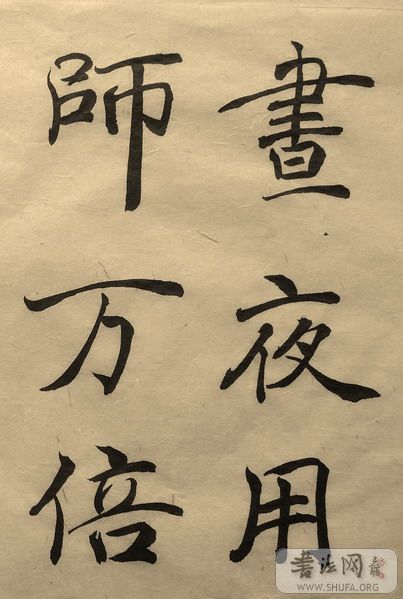 晝夜用
師万倍
書法网
WWW.SHUFA.ORG